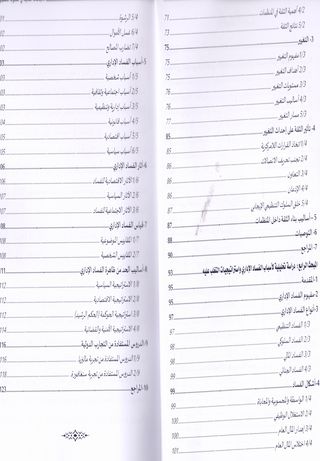 4/2 أهمية الثقة في المنظمات 71
5/2 نتائج الثقة 73
3- التغيير 75
1/3 مفهوم التغيير 75
2/3 أهداف التغيير 75
3/3 مستويات التغيير 76
4/3 أساليب التغيير 76
5/3 مسار التغيير 77
4- تأثير الثقة على إحداث التغيير 85
1/4 اتخاذ القرارات اللامركزية 85
2/4 تجنب تحريف الاتصالات 86
3/4 التعاون 86
4/4 الإذعان 86
5/4 خلق السلوك التنظيمي الإيجابي 87
5- أساليب بناء الثقة داخل المنظمات 87
6- التوصيات 88
7- المراجع 90
المبحث الرابع: دراسة تحليلية لأسباب الفساد الإداري واستراتيجيات التغلب عليه 93
1- المقدمة 95
2- مفهوم الفساد الإداري 95
3- أنواع الفساد الإداري 97
1/3 الفساد التنظيمي 97
2/3 الفساد السلوكي 97
3/3 الفساد المالي 98
4/3 الفساد الجنائي 99
4- أشكال الفساد 99
1/4 الواسطة والمحسوبية والمحاباة 99
2/4 الاستغلال الوظيفي 100
3/4 إهدار المال العام 100
4/4 اختلاس المال العام 101
5/4 الرشوة
6/4 غسل الأموال
7/4 تضارب المصالح
5- أسباب الفساد الإداري
1/5 أسباب شخصية
2/5 أسباب اجتماعية وثقافية
3/5 أسباب إدارية وتنظيمية
4/5 أسباب قانونية
5/5 أسباب اقتصادية
6/5 أسباب سياسية
6- آثار الفساد الإداري 106
1/6 الآثار الاقتصادية للفساد
2/6 الآثار السياسية
3/6 الآثار الاجتماعية للفساد
7- قياس الفساد الإداري
1/7 المقاييس الموضوعية
2/7 المقاييس
8- أساليب الحد من ظاهرة الفساد الإداري
1/8 الاستراتيجية السياسية
2/8 الاستراتيجية الاقتصادية
3/8 استراتيجية الحوكمة (الحكم الرشيد)
4/8 الاستراتيجية الأمنية والقضائية
9- الدروس المستفادة من التجارب الدولية 116
1/9 الدروس المستفادة من تجربة ماليزيا 116
2/9 الدروس المستفادة من تجربة سنغافورة 118
10- المراجع 123